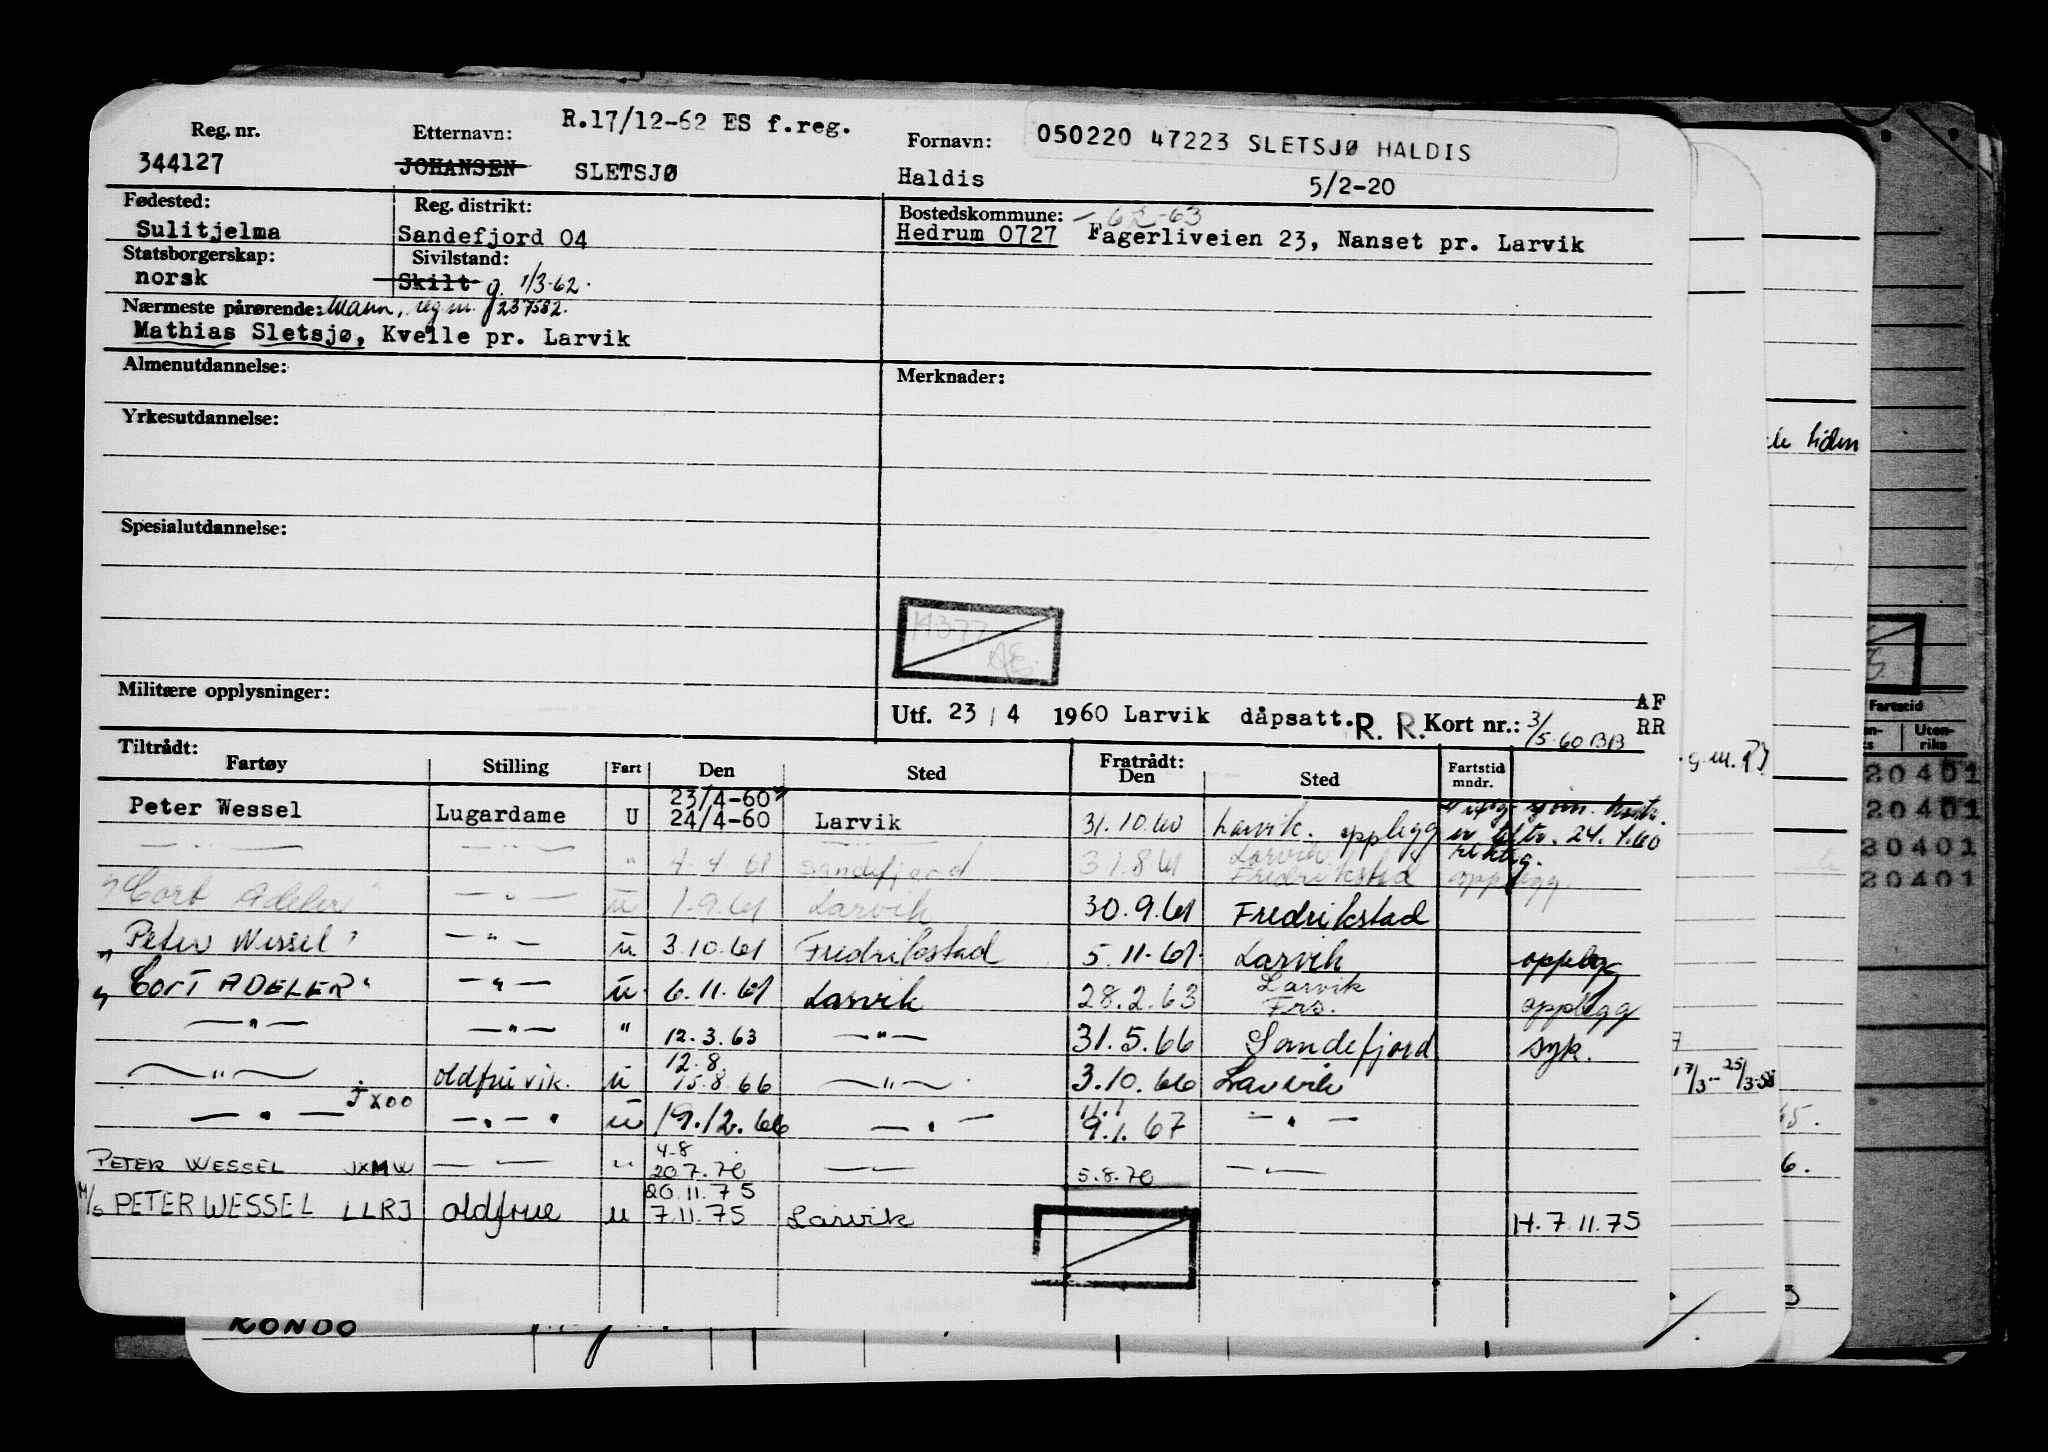 R.17/12-62 ES f.reg.
Reg. nr. Etternavn: Fornavn: 050220 47223 SLETSJØ HALDIS
344127 JOHANSEN SLETSJØ Haldis 5/2-20
Fødested: Reg. distrikt: Bostedskommune: - 62-63
Sulitjelma Sandefjord 04 Hedrum 0727 Fagerliveien 23, Nanset pr. Larvik
Statsborgerskap: Sivilstand:
norsk Skilt g. 1/3-62.
Nærmeste pårørende: Mann, reg.nr. 237582.
Mathias Sletsjø, Kvelle pr. Larvik
Almenutdannelse: Merknader:
Yrkesutdannelse:
Spesialutdannelse:
Militære opplysninger:
AF
Utf. 23/4 1960 Larvik dåpsatt. R. R. Kort nr.: 3/5-60 BB RR
Tiltrådt: Fratrådt:
Fartøy Stilling Fart Den Sted Den Sted Fartstid mndr.
23/4-60
Peter Wessel Lugardame U 24/4-60 Larvik 31.10.60 Larvik. opplegg 24.4.60
— " — — " — " 4-4 61 Sandefjord 31.8.61 Larvik Fredrikstad opplegg
"Cort Adeler" — " — u 1.9.61 Larvik 30.9.61 Fredrikstad
"Peter Wessel" — " — u 3.10.61 Fredrikstad 5.11.61 Larvik opplegg
"Cort ADELER" — " — u 6.11.61 Larvik 28.2.63 Larvik Frs. opplegg
— " — — " — " 12.3.63 — " — 31.5.66 Sandefjord syk.
12.8.
— " — oldfrue vik. u 15.8.66 — " — 3.10.66 Larvik
— " — JXOO — " — u 19.12.66 — " — 9.1.67 — " —
4-8
PETER WESSEL JXMW — " — " 20.7.70 — " — 5.8.70 — " —
20.11.75
M/S PETER WESSEL LLRJ oldfrue u 7.11.75 Larvik H.7.11.75
RONDO
le tiden
Fartstid
Uten-
riks
20401
20401
20401
20401
g.m.
17/3 - 25/3-58
6.